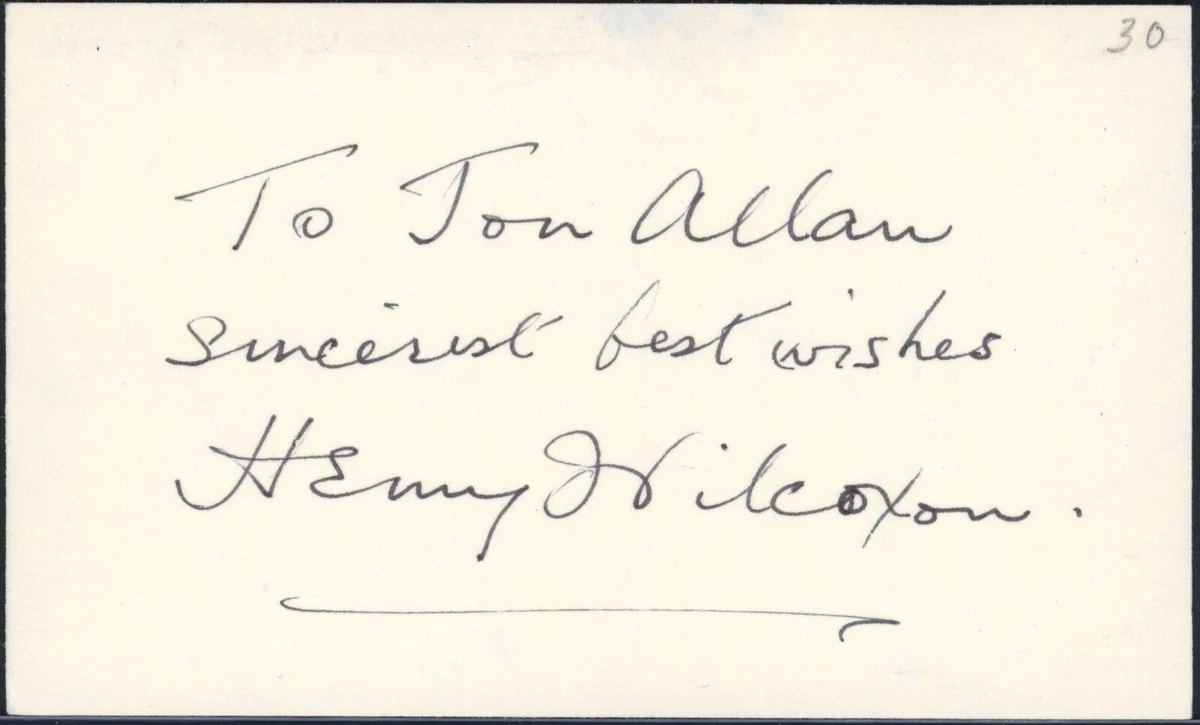 30
To Jon Allan
sincerest best wishes
Henry Wilcoxon.